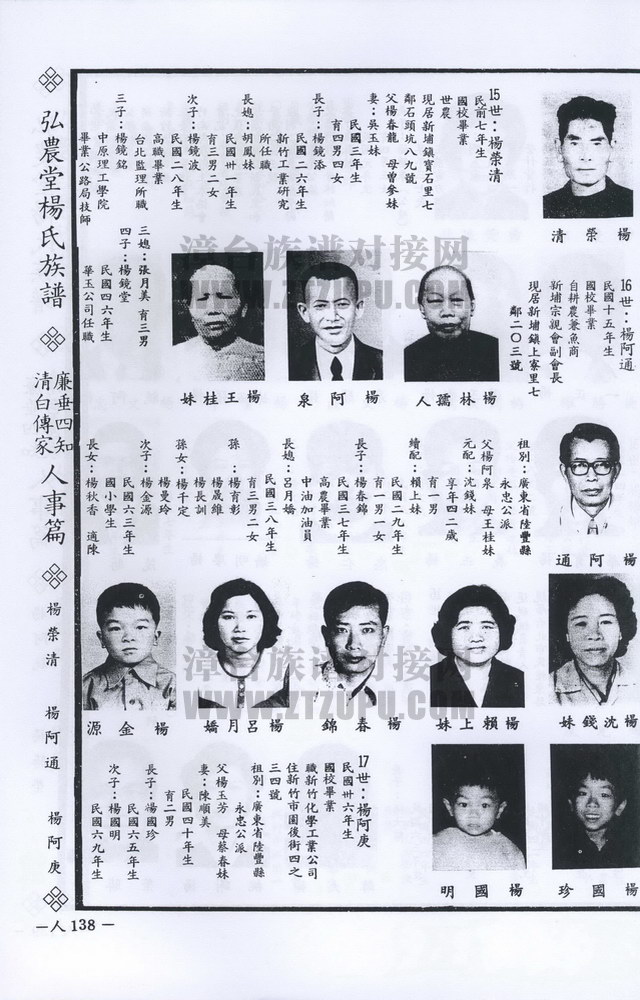 15世：楊榮清
民前七年生
國校畢業
世農
現居新埔鎮寶石里七
鄰石頭坑八九號
父楊春龍　母曾參妹
妻：吳玉妹
民國三年生
育四男四女
長子：楊鏡添
民國二六年生
新竹工業研究
所任職
長媳：胡鳳妹
民國卅一年生
育三男二女
次子：楊鏡波
民國二八年生
高職畢業
台北監理所職
三子：楊鏡銘
中原理工學院
畢業公路局技師
楊榮清
三媳：張月美　育三男
四子：楊鏡堂
民國四六年生
華玉公司任職
16世：楊阿通
民國十五年生
國校畢業
自耕農兼魚商
新埔宗親會副會長
現居新埔鎮上寮里七
鄰二０三號
楊林孺人
楊阿泉
楊王桂妹
祖別：廣東省陸豐縣
永忠公派
父楊阿泉　母王桂妹
元配：沈錢妹
享年四二歲
育一男
續配：賴上妹
民國二九年生
育一男一女
長子：楊春錦
民國三七年生
高農畢業
中油加油員
長媳：呂月嬌
民國三八年生
育三男二女
孫：楊育彰
楊晟維
楊長訓
孫女：楊千定
楊曼玲
次子：楊金源
民國六三年生
國小學生
長女：楊秋香　適陳
楊阿通
楊沈錢妹
楊賴上妹
楊春錦
楊呂月嬌
楊金源
17世：楊阿庚
民國卅六年生
國校畢業
職新竹化學工業公司
住新竹市園後街四之
三四號
祖別：廣東省陸豐縣
永忠公派
父楊玉芳　母蔡春妹
妻：陳順美
民國四十年生
育二男
長子：楊國珍
民國六五年生
次子：楊國明
民國六九年生
楊國珍
楊國明
弘農堂楊氏族譜
廉垂四知
清白傳家
人事篇
楊榮清
楊阿通
楊阿庚
—人138—
漳台族谱对接网
WWW.ZTZUPU.COM
漳台族谱对接网
WWW.ZTZUPU.COM